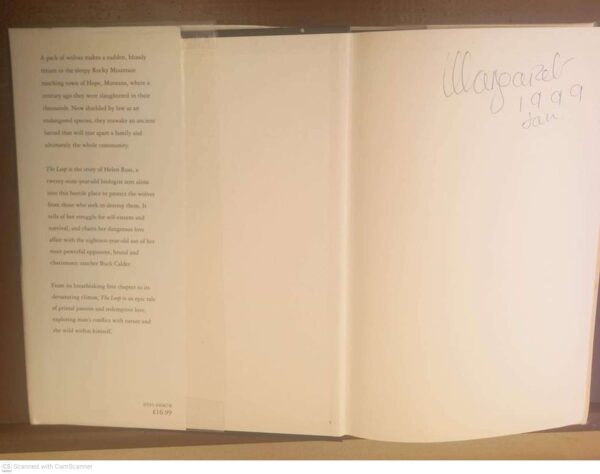 A pack of wolves makes a sudden, bloody
return to the sleepy Rocky Mountain
ranching town of Hope, Montana, where a
century ago they were slaughtered in their
thousands. Now shielded by law as an
endangered species, they reawake an ancient
hatred that will tear apart a family and
ultimately the whole community.
The Loop is the story of Helen Ross, a
twenty-nine-year-old biologist sent alone
into this hostile place to protect the wolves
from those who seek to destroy them. It
tells of her struggle for self-esteem and
survival, and charts her dangerous love
affair with the eighteen-year-old son of her
most powerful opponent, brutal and
charismatic rancher Buck Calder.
From its breathtaking first chapter to its
devastating climax, The Loop is an epic tale
of primal passion and redemptive love,
exploring man's conflict with nature and
the wild within himself.
£16.99
Margaret
1999
Jan
CS Scanned with CamScanner